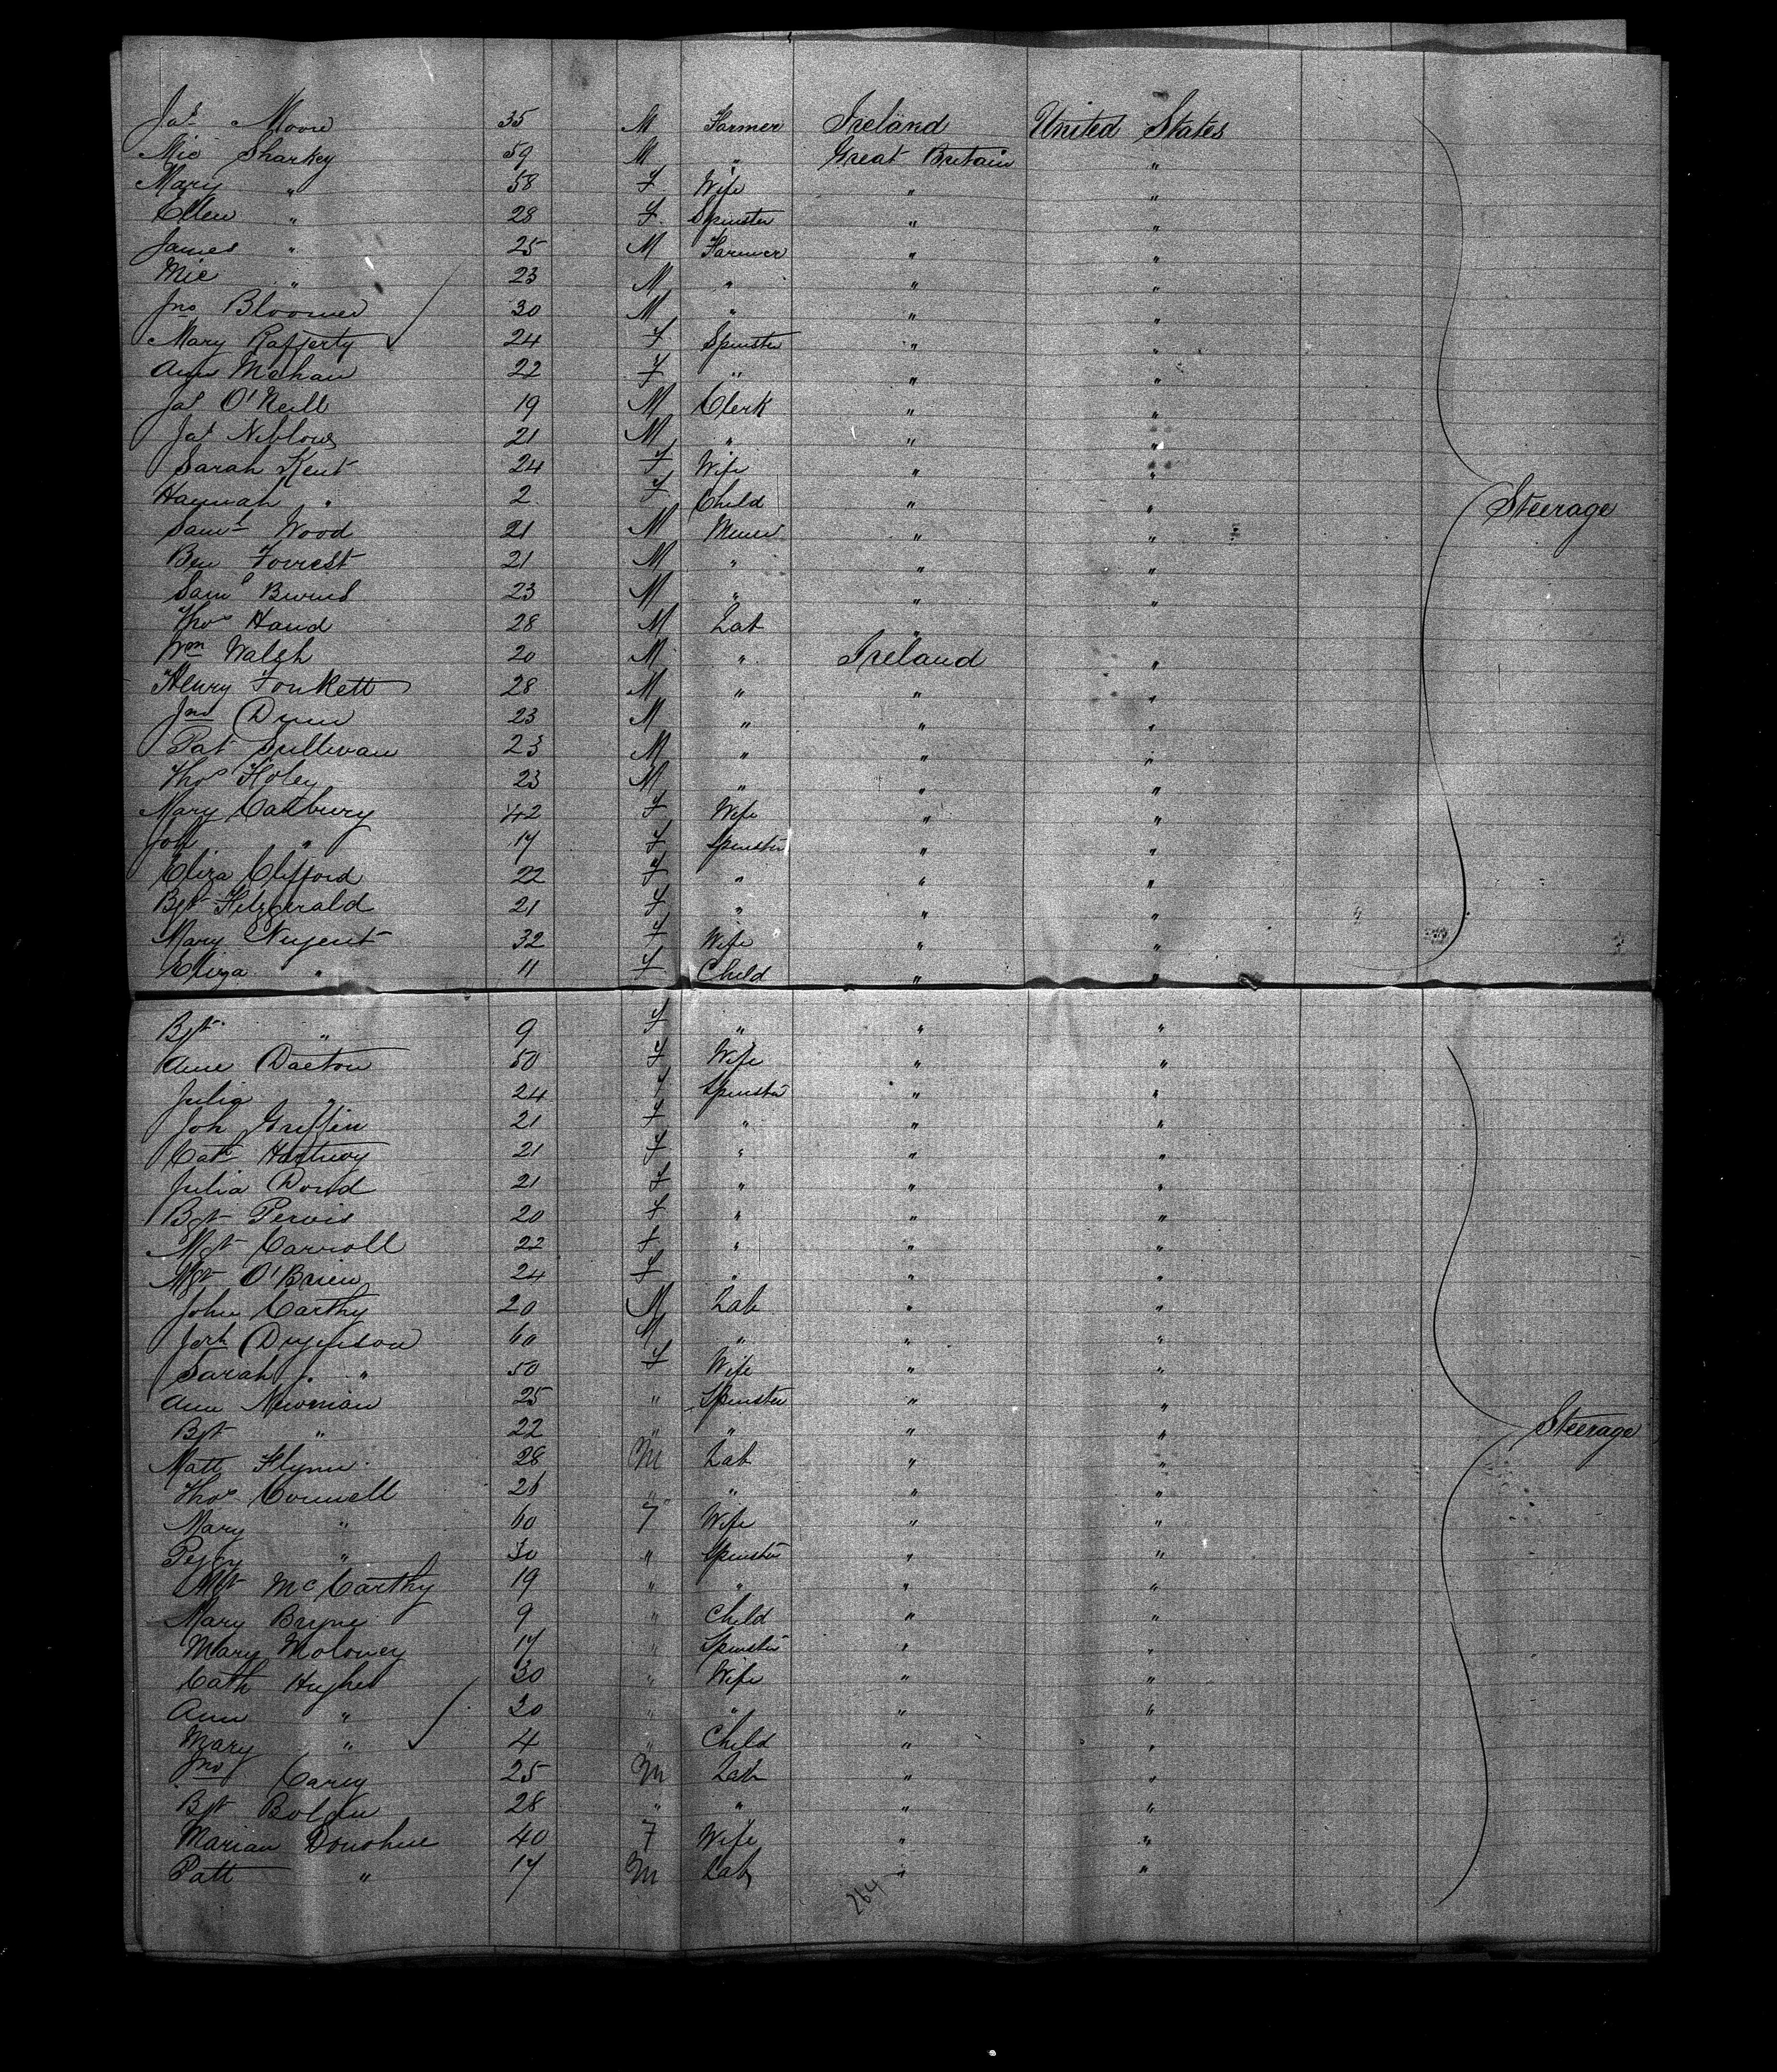 Jas Moore 35 M Farmer Ireland United States
Mic Sharkey 59 M " Great Britain "
Mary " 58 F Wife " "
Ellen " 28 F Spinster " "
James " 25 M Farmer " "
Mic " 23 M " " "
Jno Bloomer 30 M " " "
Mary Rafferty 24 F Spinster " "
Ann Mehan 22 F " " "
Jas O'Neill 19 M Clerk " "
Jas Niblows 21 M " " "
Sarah Kent 24 F Wife " "
Hannah " 2 F Child " "
Steerage
Saml Wood 21 M Miner " "
Ben Forrest 21 M " " "
Saml Burns 23 M " " "
Thos Hand 28 M Lab "
Wm Walsh 20 M " Ireland "
Henry Fonkett 28 M " " "
Jno Dunn 23 M " " "
Pat Sullivan 23 M " " "
Thos Foley 23 M " " "
Mary Cadbury 42 F Wife " "
" 17 F Spinster " "
Eliza Clifford 22 F " " "
Bgt Fitzgerald 21 F " " "
Mary Nugent 32 F Wife " "
Eliza " 11 F Child " "
Bgt " 9 F " " "
Anne Dacton 50 F Wife " "
Julia " 24 F Spinster " "
Joh Griffin 21 F " " "
Cath 21 F " " "
Julia Dowd 21 F " " "
Bgt Pervis 20 F " " "
Mgt Carroll 22 F " " "
Mgt O'Brien 24 F " " "
John Carthy 20 M Lab " "
60 M " " "
Sarah " 50 F Wife " "
Ann Newman 25 " Spinster " "
Steerage
Bgt " 22 " " " "
Matt Flynn 28 M Lab " "
Thos Connell 26 " " " "
Mary " 60 F Wife " "
Peggy " 30 " Spinster " "
Mgt McCarthy 19 " " " "
Mary Bryne 9 " Child " "
Mary Moloney 17 " Spinster " "
Cath Hughes 30 " Wife " "
Ann " 20 " " " "
Mary " 4 " Child " "
Jno Carey 25 M Lab " "
Bgt Bolgin 28 " " " "
Marian Donohue 40 F Wife " "
Patt " 17 M Lab " "
264